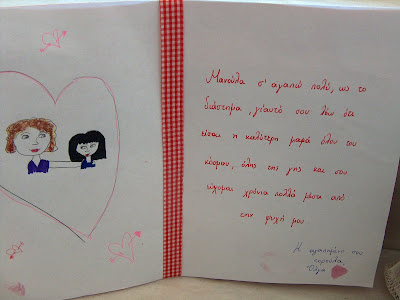 Μανούλα σ' αγαπώ πολύ, ως το
διάστημα, γι'αυτό σου λέω ότι
είσαι η καλύτερη μαμά όλου του
κόσμου, όλης της γης και σου
εύχομαι χρόνια πολλά μέσα από
την ψυχή μου
Η αγαπημένη σου
κορούλα
Όλγα